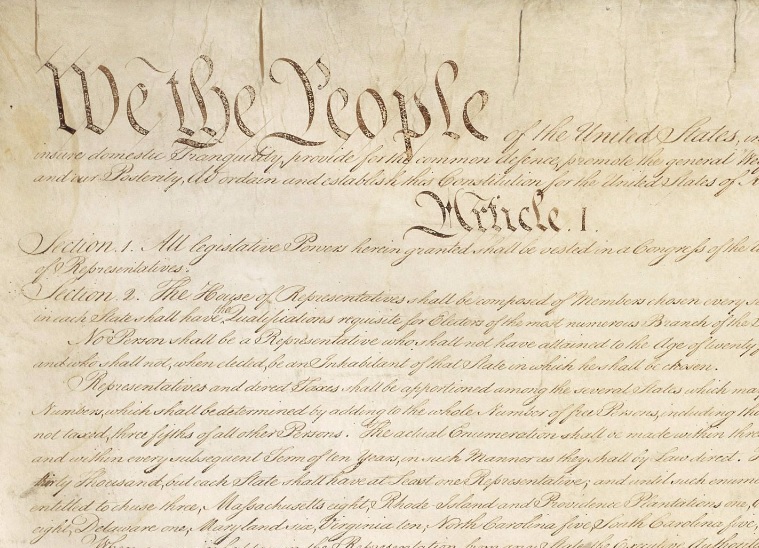 We the People of the United States,
insure domestic Tranquility, provide for the common defence, promote the general
and our Posterity, do ordain and establish this Constitution for the United States of
Article. I.
Section. 1. All legislative Powers herein granted shall be vested in a Congress of the
of Representatives.
Section. 2. The House of Representatives shall be composed of Members chosen every
in each State shall have the Qualifications requisite for Electors of the most numerous Branch of the
No Person shall be a Representative who shall not have attained to the Age of twenty
and who shall not, when elected, be an Inhabitant of that State in which he shall be chosen.
Representatives and direct Taxes shall be apportioned among the several States which may
Numbers, which shall be determined by adding to the whole Number of free Persons, including
not taxed, three fifths of all other Persons. The actual Enumeration shall be made within
and within every subsequent Term of ten Years, in such Manner as they shall by Law direct.
thirty Thousand, but each State shall have at Least one Representative; and until such
entitled to chuse three, Massachusetts eight, Rhode Island and Providence Plantations one,
eight, Delaware one, Maryland six, Virginia ten, North Carolina five, South Carolina five,
When in the Representation from any State, the Executive